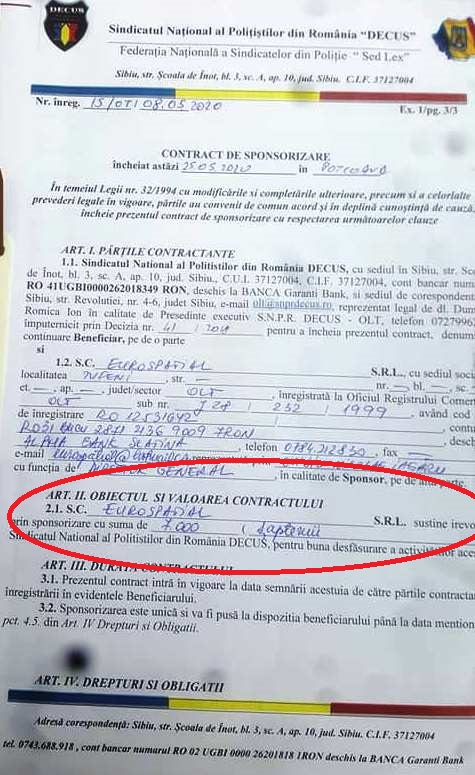 DECUS
Sindicatul Național al Polițiștilor din România “DECUS”
Federația Națională a Sindicatelor din Poliție “ Sed Lex”
Sibiu, str. Școala de Înot, bl. 3, sc. A, ap. 10, jud. Sibiu. C.I.F. 37127004
Nr. înreg. 15/OT/08.05.2020
Ex. 1/pg. 3/3
CONTRACT DE SPONSORIZARE
încheiat astăzi 25.05.2020 în POTCOAVA
În temeiul Legii nr. 32/1994 cu modificările si completările ulterioare, precum si a celorlalte
prevederi legale în vigoare, părțile au convenit de comun acord și în deplină cunoștință de cauză,
încheie prezentul contract de sponsorizare cu respectarea următoarelor clauze
ART. I. PĂRȚILE CONTRACTANTE
1.1. Sindicatul Național al Politistilor din România DECUS, cu sediul în Sibiu, str. Sc
de Înot, bl. 3, sc. A, ap. 10, jud. Sibiu., C.U.I. 37127004, C.I.F. 37127004, cont bancar num
RO 41UGBI0000262018349 RON, deschis la BANCA Garanti Bank, si sediul de coresponden
Sibiu, str. Revolutiei, nr. 4-6, judet Sibiu, e-mail olt@snprdecus.ro, reprezentat legal de dl. Dum
Romica Ion în calitate de Presedinte executiv S.N.P.R. DECUS - OLT, telefon 07279962
împuternicit prin Decizia nr. 41 / 2019 pentru a încheia prezentul contract, denum
continuare Beneficiar, pe de o parte
si
1.2. S.C. EUROSPATIAL S.R.L., cu sediul socia
localitatea TUFENI, str. nr. , bl. , sc.
et. , ap. , judet/sector OLT, înregistrată la Oficiul Registrului Comer
OLT sub nr. J28 / 232 / 1999, având cod
de înregistrare RO 12531642, contu
ALPHA BANK SLATINA, telefon 0784.212830, fax
e-mail
cu funcția de DIRECTOR GENERAL, în calitate de Sponsor, pe de altă parte,
ART. II. OBIECTUL SI VALOAREA CONTRACTULUI
2.1. S.C. EUROSPATIAL S.R.L. sustine irevo
prin sponsorizare cu suma de 7.000 ( șaptemii
Sindicatul National al Politistilor din România DECUS, pentru buna desfăsurare a activităților aces
ART. III. DURATA CONTRACTULUI
3.1. Prezentul contract intră în vigoare la data semnării acestuia de către părțile contracta
înregistrării in evidentele Beneficiarului.
3.2. Sponsorizarea este unică si va fi pusă la dispozitia beneficiarului până la data mention
pct. 4.5. din Art. IV Drepturi si Obligatii.
ART. IV. DREPTURI SI OBLIGATII
Adresă corespondență: Sibiu, str. Școala de Înot, bl. 3, sc. A, ap. 10, jud. Sibiu. C.I.F. 37127004
tel. 0743.688.918 , cont bancar numarul RO 02 UGBI 0000 26201818 1RON deschis la BANCA Garanti Bank